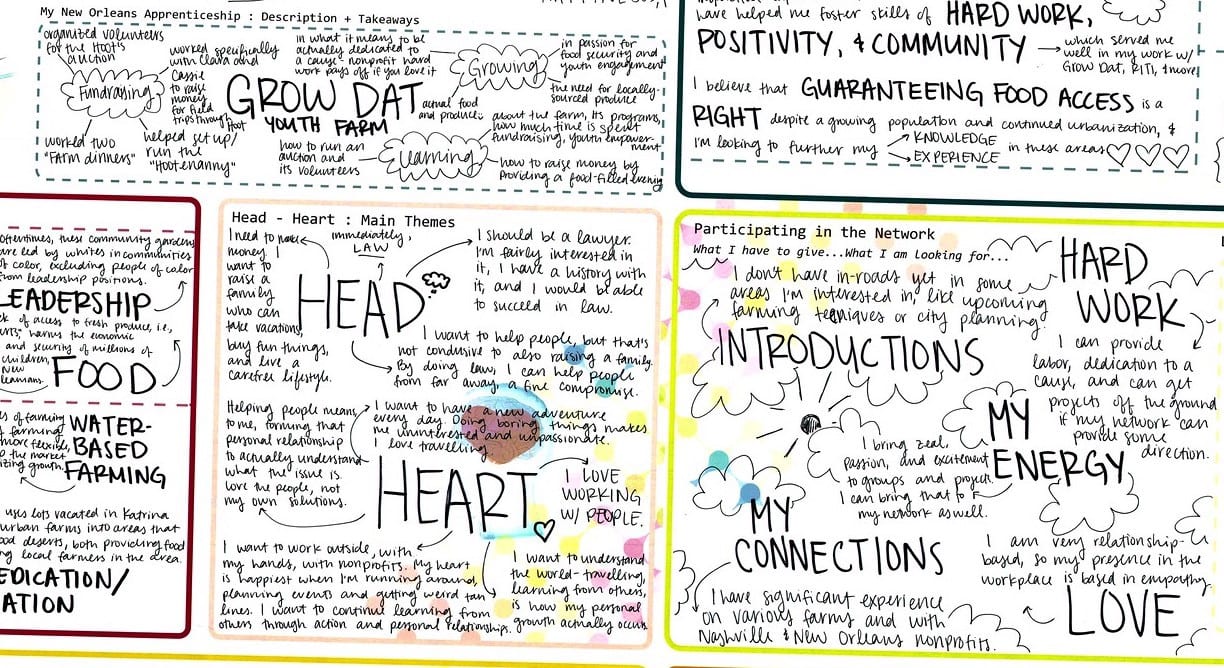 My New Orleans Apprenticeship : Description + Takeaways
organized volunteers
for the Hoot's
auction
Fundraising
worked two
"Farm dinners"
worked specifically
with Clara and
Cassie
to raise
money
for field
trips through
Hoot
helped set up/
run the
"Hootenanny"
GROW DAT
YOUTH FARM
in what it means to be
actually dedicated to
a cause nonprofit hard
work pays off if you love it
Growing
in passion for
food security and
youth engagement
the need for locally-
sourced produce
actual food
and produce
how to run an
auction and
its volunteers
Learning
about the farm, its programs,
how much time is spent
fundraising, youth empower-
ment
how to raise money by
providing a food-filled evening
have helped me foster skills of HARD WORK,
POSITIVITY, & COMMUNITY
which served me
well in my work w/
Grow Dat, RITI, + more
I believe that GUARANTEEING FOOD ACCESS is a
RIGHT despite a growing population and continued urbanization, &
I'm looking to further my KNOWLEDGE
EXPERIENCE in these areas
oftentimes, these community gardens
are led by whites in communities
of color, excluding people of color
from leadership positions.
LEADERSHIP
of access to fresh produce, i.e.,
harms the economic
and security of millions of
children
New
FOOD
of farming
farming
more flexible
the market
growth.
WATER-
BASED
FARMING
uses lots vacated in Katrina
urban farms into areas that
deserts, both providing food
local farmers in the area.
EDICATION/
ATION
Head - Heart : Main Themes
I need to make
money. I
want to
raise a
family
who can
take vacations,
buy fun things,
and live a
carefree lifestyle.
immediately,
LAW
HEAD
I should be a lawyer.
I'm fairly interested in
it, I have a history with
it, and I would be able
to succeed in law.
I want to help people, but that's
not conducive to also raising a family.
By doing law, I can help people
from far away, a fine compromise.
Helping people means
to me, forming that
personal relationship
to actually understand
what the issue is.
love the people, not
my own solutions.
I want to have a new adventure
every day. Doing boring things makes
me uninterested and unpassionate.
I love travelling.
HEART
I LOVE
WORKING
W/ PEOPLE.
I want to work outside, with
my hands, with nonprofits. My heart
is happiest when I'm running around,
planning events and getting weird tan
lines. I want to continue learning from
others through action and personal relationships.
I want to understand
the world - travelling,
learning from others,
is how my personal
growth actually occurs
Participating in the Network
What I have to give...What I am looking for...
I don't have in-roads yet in some
areas I'm interested in, like upcoming
farming teqniques or city planning.
INTRODUCTIONS
HARD
WORK
I can provide
labor, dedication to a
cause, and can get
projects off the ground
if my network can
provide some
direction.
MY
ENERGY
I bring zeal,
passion, and excitement
to groups and project.
I can bring that to
my network as well.
MY
CONNECTIONS
I have significant experience
on various farms and with
Nashville & New Orleans nonprofits.
I am very relationship-
based, so my presence in the
workplace is based in empathy
LOVE